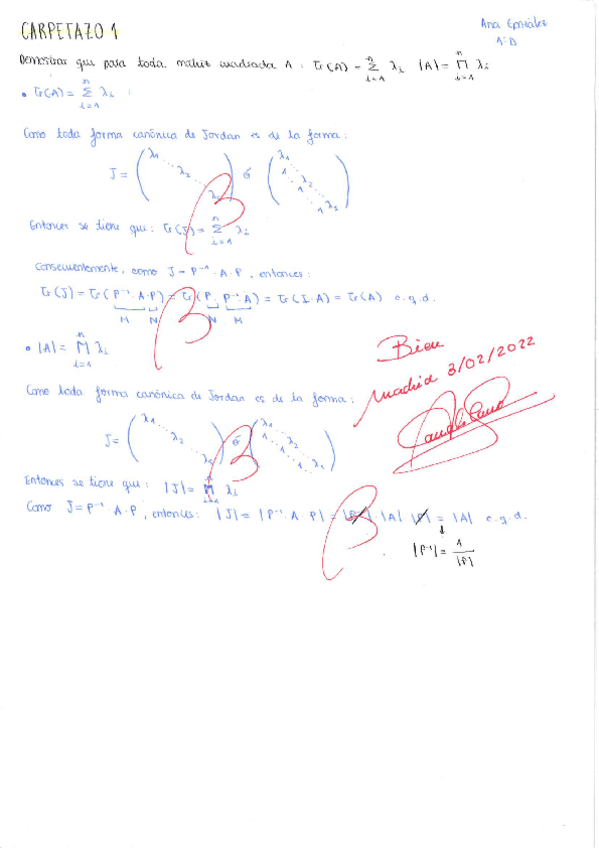 CARPETAZO 1
Ana González
1ºD
Demostrar que para toda matriz cuadrada A : Tr(A) = Σ_{i=1}^{n} λi |A| = Π_{i=1}^{n} λi
• Tr(A) = Σ_{i=1}^{n} λi :
Como toda forma canónica de Jordan es de la forma:
J = ( λ1 ⋱ λ2 ⋱ λi ) ó ( λ1 1 ⋱ λ2 1 ⋱ 1 λi )
Entonces se tiene que : Tr(J) = Σ_{i=1}^{n} λi
Consecuentemente, como J = P⁻¹ · A · P, entonces:
Tr(J) = Tr(P⁻¹ · A · P) = Tr(P · P⁻¹ A) = Tr(I · A) = Tr(A) c.q.d.
M N N M
• |A| = Π_{i=1}^{n} λi
Bien
Madrid 3/02/2022
Como toda forma canónica de Jordan es de la forma:
J = ( λ1 ⋱ λ2 ⋱ λi ) ó ( λ1 1 ⋱ λ2 1 ⋱ 1 λi )
Entonces se tiene que : |J| = Π_{i=1}^{n} λi
Como J = P⁻¹ · A · P, entonces: |J| = |P⁻¹ · A · P| = |P⁻¹| · |A| · |P| = |A| c.q.d.
|P⁻¹| = 1/|P|